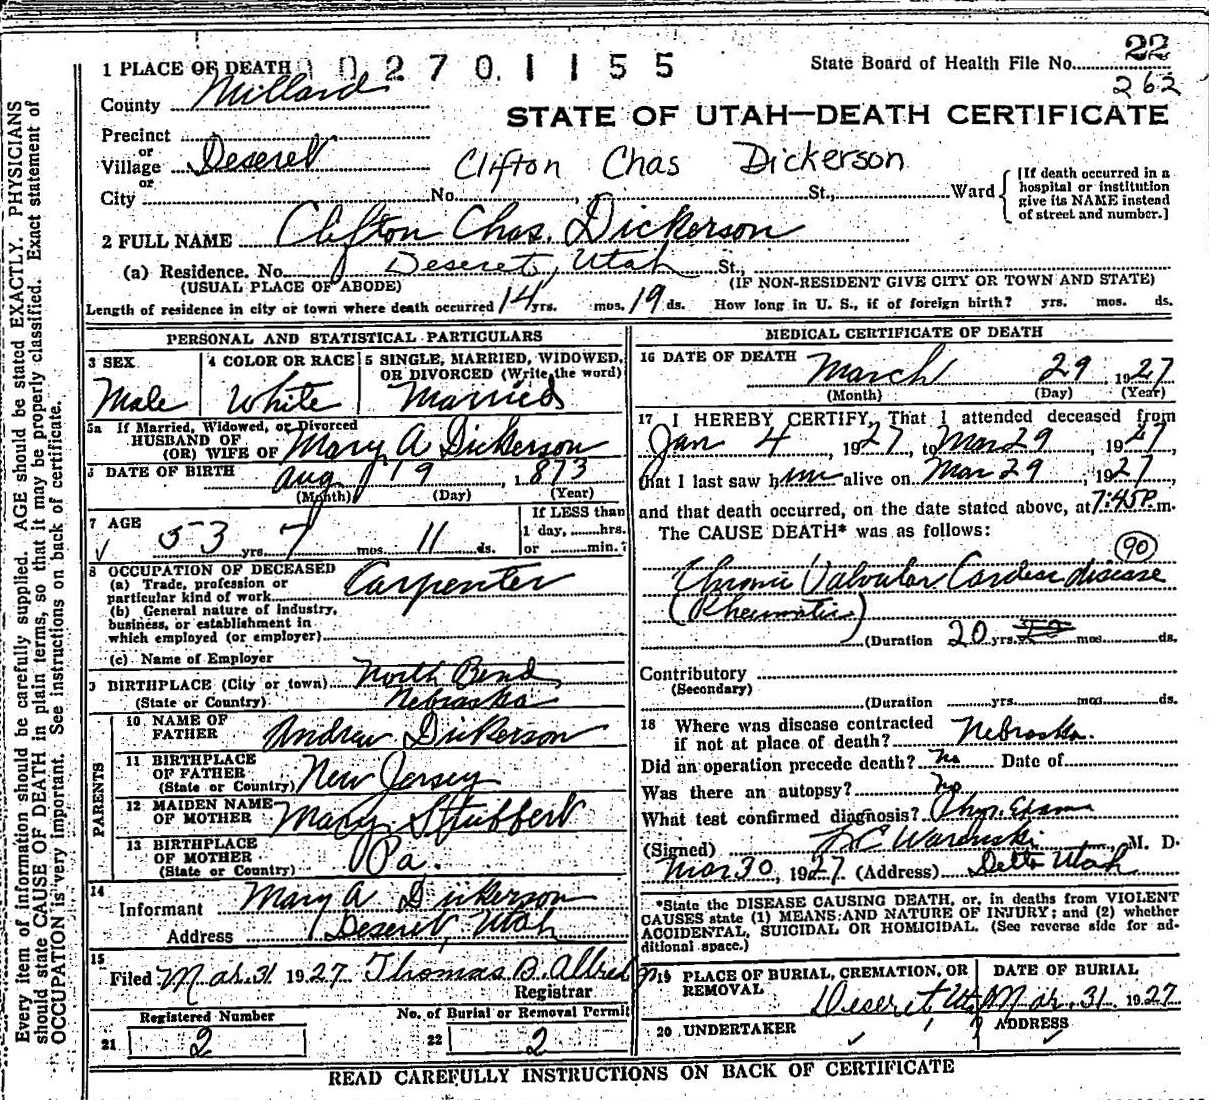 1 PLACE OF DEATH 0 0 2 7 0 1 1 5 5
State Board of Health File No. 22
262
County Millard
STATE OF UTAH—DEATH CERTIFICATE
Precinct
or
Village Deseret
Clifton Chas Dickerson
or
City No. St., Ward
[If death occurred in a
hospital or institution
give its NAME instead
of street and number.]
2 FULL NAME Clifton Chas. Dickerson
(a) Residence. No. Deseret, Utah St.,
(USUAL PLACE OF ABODE) (IF NON-RESIDENT GIVE CITY OR TOWN AND STATE)
Length of residence in city or town where death occurred 14 yrs. mos. 19 ds. How long in U. S., if of foreign birth? yrs. mos. ds.
PERSONAL AND STATISTICAL PARTICULARS
3 SEX
Male
4 COLOR OR RACE
White
5 SINGLE, MARRIED, WIDOWED,
OR DIVORCED (Write the word)
Married
5a If Married, Widowed, or Divorced
HUSBAND OF
(OR) WIFE OF Mary A Dickerson
DATE OF BIRTH Aug 19, 1873
(Month) (Day) (Year)
7 AGE
53 yrs. 7 mos. 11 ds.
If LESS than
1 day, hrs.
or min.
8 OCCUPATION OF DECEASED
(a) Trade, profession or
particular kind of work Carpenter
(b) General nature of industry,
business, or establishment in
which employed (or employer)
(c) Name of Employer
9 BIRTHPLACE (City or town) North Bend
(State or Country) Nebraska
PARENTS
10 NAME OF
FATHER Andrew Dickerson
11 BIRTHPLACE
OF FATHER
(State or Country) New Jersey
12 MAIDEN NAME
OF MOTHER Mary Stubbert
13 BIRTHPLACE
OF MOTHER
(State or Country) Pa.
14
Informant Mary A Dickerson
Address Deseret, Utah
15
Filed Mar. 31 1927 Thomas B. Allred
Registrar
Registered Number
21 2
No. of Burial or Removal Permit
22 2
MEDICAL CERTIFICATE OF DEATH
16 DATE OF DEATH March 29, 1927
(Month) (Day) (Year)
17 I HEREBY CERTIFY, That I attended deceased from
Jan 4, 1927, to Mar 29, 1927,
that I last saw him alive on Mar 29, 1927,
and that death occurred, on the date stated above, at 7:45 P. m.
The CAUSE DEATH* was as follows:
90
Chronic Valvular Cardiac disease
(Rheumatic)
(Duration 20 yrs. mos. ds.
Contributory
(Secondary)
(Duration yrs. mos. ds.
18 Where was disease contracted
if not at place of death? Nebraska.
Did an operation precede death? No Date of
Was there an autopsy? No
What test confirmed diagnosis? Phys. Exam
(Signed) Warenski M. D.
Mar 30, 1927 (Address) Delta Utah
*State the DISEASE CAUSING DEATH, or, in deaths from VIOLENT
CAUSES state (1) MEANS AND NATURE OF INJURY; and (2) whether
ACCIDENTAL, SUICIDAL OR HOMICIDAL. (See reverse side for ad-
ditional space.)
19 PLACE OF BURIAL, CREMATION, OR
REMOVAL
Deseret Utah
DATE OF BURIAL
Mar. 31 1927
20 UNDERTAKER
ADDRESS
READ CAREFULLY INSTRUCTIONS ON BACK OF CERTIFICATE
Every item of information should be carefully supplied. AGE should be stated EXACTLY. PHYSICIANS
should state CAUSE OF DEATH in plain terms, so that it may be properly classified. Exact statement of
OCCUPATION is very important. See instructions on back of certificate.